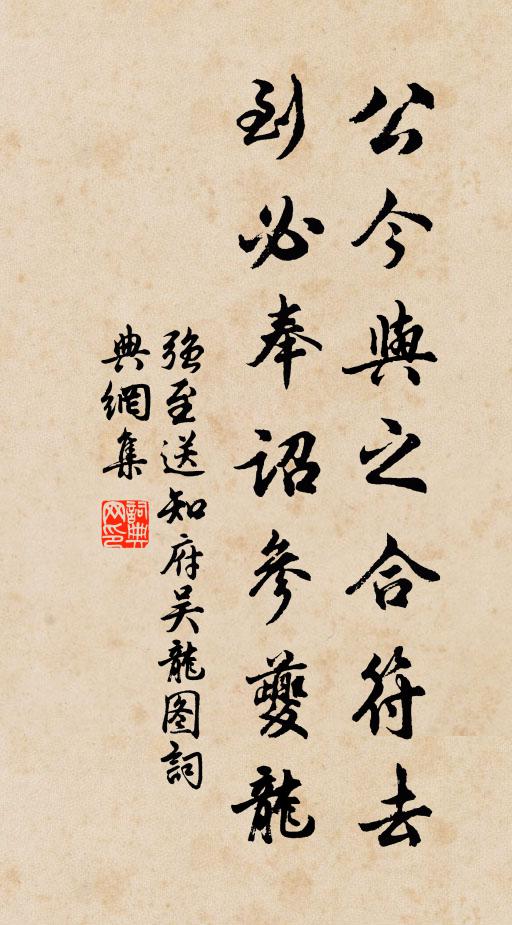 公今與之合符去
到必奉詔參夔龍
強至送知府吴龍图詞
典網集
詞典
网印